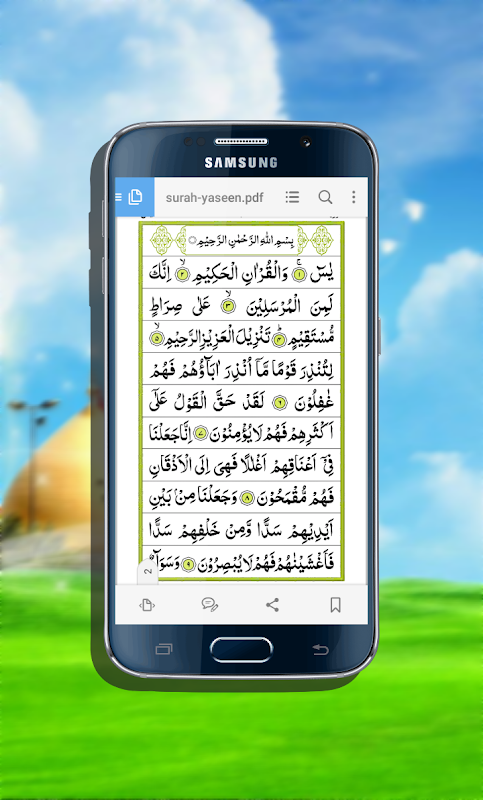 SAMSUNG
surah-yaseen.pdf
بِسْمِ اللهِ الرَّحْمٰنِ الرَّحِيْمِ
يٰسٓ ۚ ﴿١﴾ وَالْقُرْاٰنِ الْحَكِيْمِ ۙ ﴿٢﴾ اِنَّكَ
لَمِنَ الْمُرْسَلِيْنَ ۙ ﴿٣﴾ عَلٰى صِرَاطٍ
مُّسْتَقِيْمٍ ؕ ﴿٤﴾ تَنْزِيْلَ الْعَزِيْزِ الرَّحِيْمِ ۙ ﴿٥﴾
لِتُنْذِرَ قَوْمًا مَّاۤ اُنْذِرَ اٰبَآؤُهُمْ فَهُمْ
غٰفِلُوْنَ ﴿٦﴾ لَقَدْ حَقَّ الْقَوْلُ عَلٰٓى
اَكْثَرِهِمْ فَهُمْ لَا يُؤْمِنُوْنَ ﴿٧﴾ اِنَّا جَعَلْنَا
فِيْۤ اَعْنَاقِهِمْ اَغْلٰلًا فَهِيَ اِلَى الْاَذْقَانِ
فَهُمْ مُّقْمَحُوْنَ ﴿٨﴾ وَجَعَلْنَا مِنْۢ بَيْنِ
اَيْدِيْهِمْ سَدًّا وَّمِنْ خَلْفِهِمْ سَدًّا
فَاَغْشَيْنٰهُمْ فَهُمْ لَا يُبْصِرُوْنَ ﴿٩﴾ وَسَوَآءٌ
2